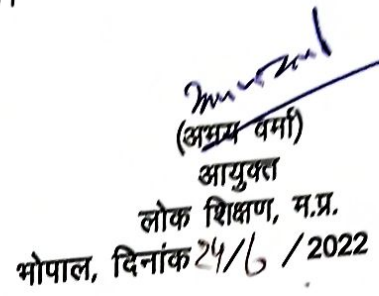 (अभय वर्मा)
आयुक्त
लोक शिक्षण, म.प्र.
भोपाल, दिनांक 24/6 /2022